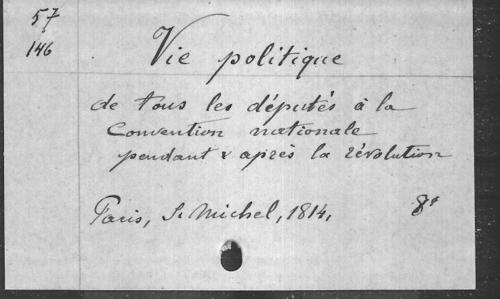 57
146
Vie politique
de tous les députés à la
Convention nationale
pendant & après la révolution
Paris, S. Michel, 1814, 8°